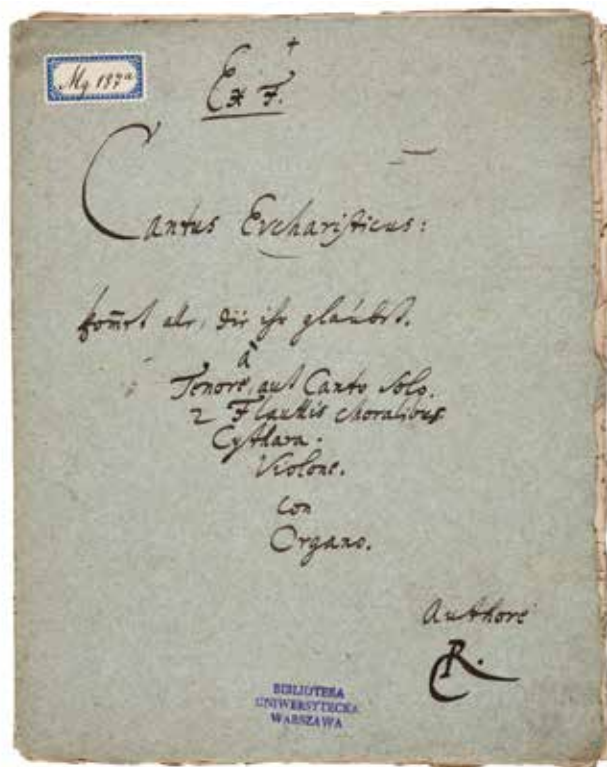 Mq 197a
Ex F.
Cantus Evcharisticus:
kom̄et alle, die ihr glaubet.
à
Tenore, aut Canto Solo.
2 Flauttis choralibus
Cythara.
Violone.
con
Organo.
Authore
R.
BIBLIOTEKA
UNIWERSYTECKA
WARSZAWA